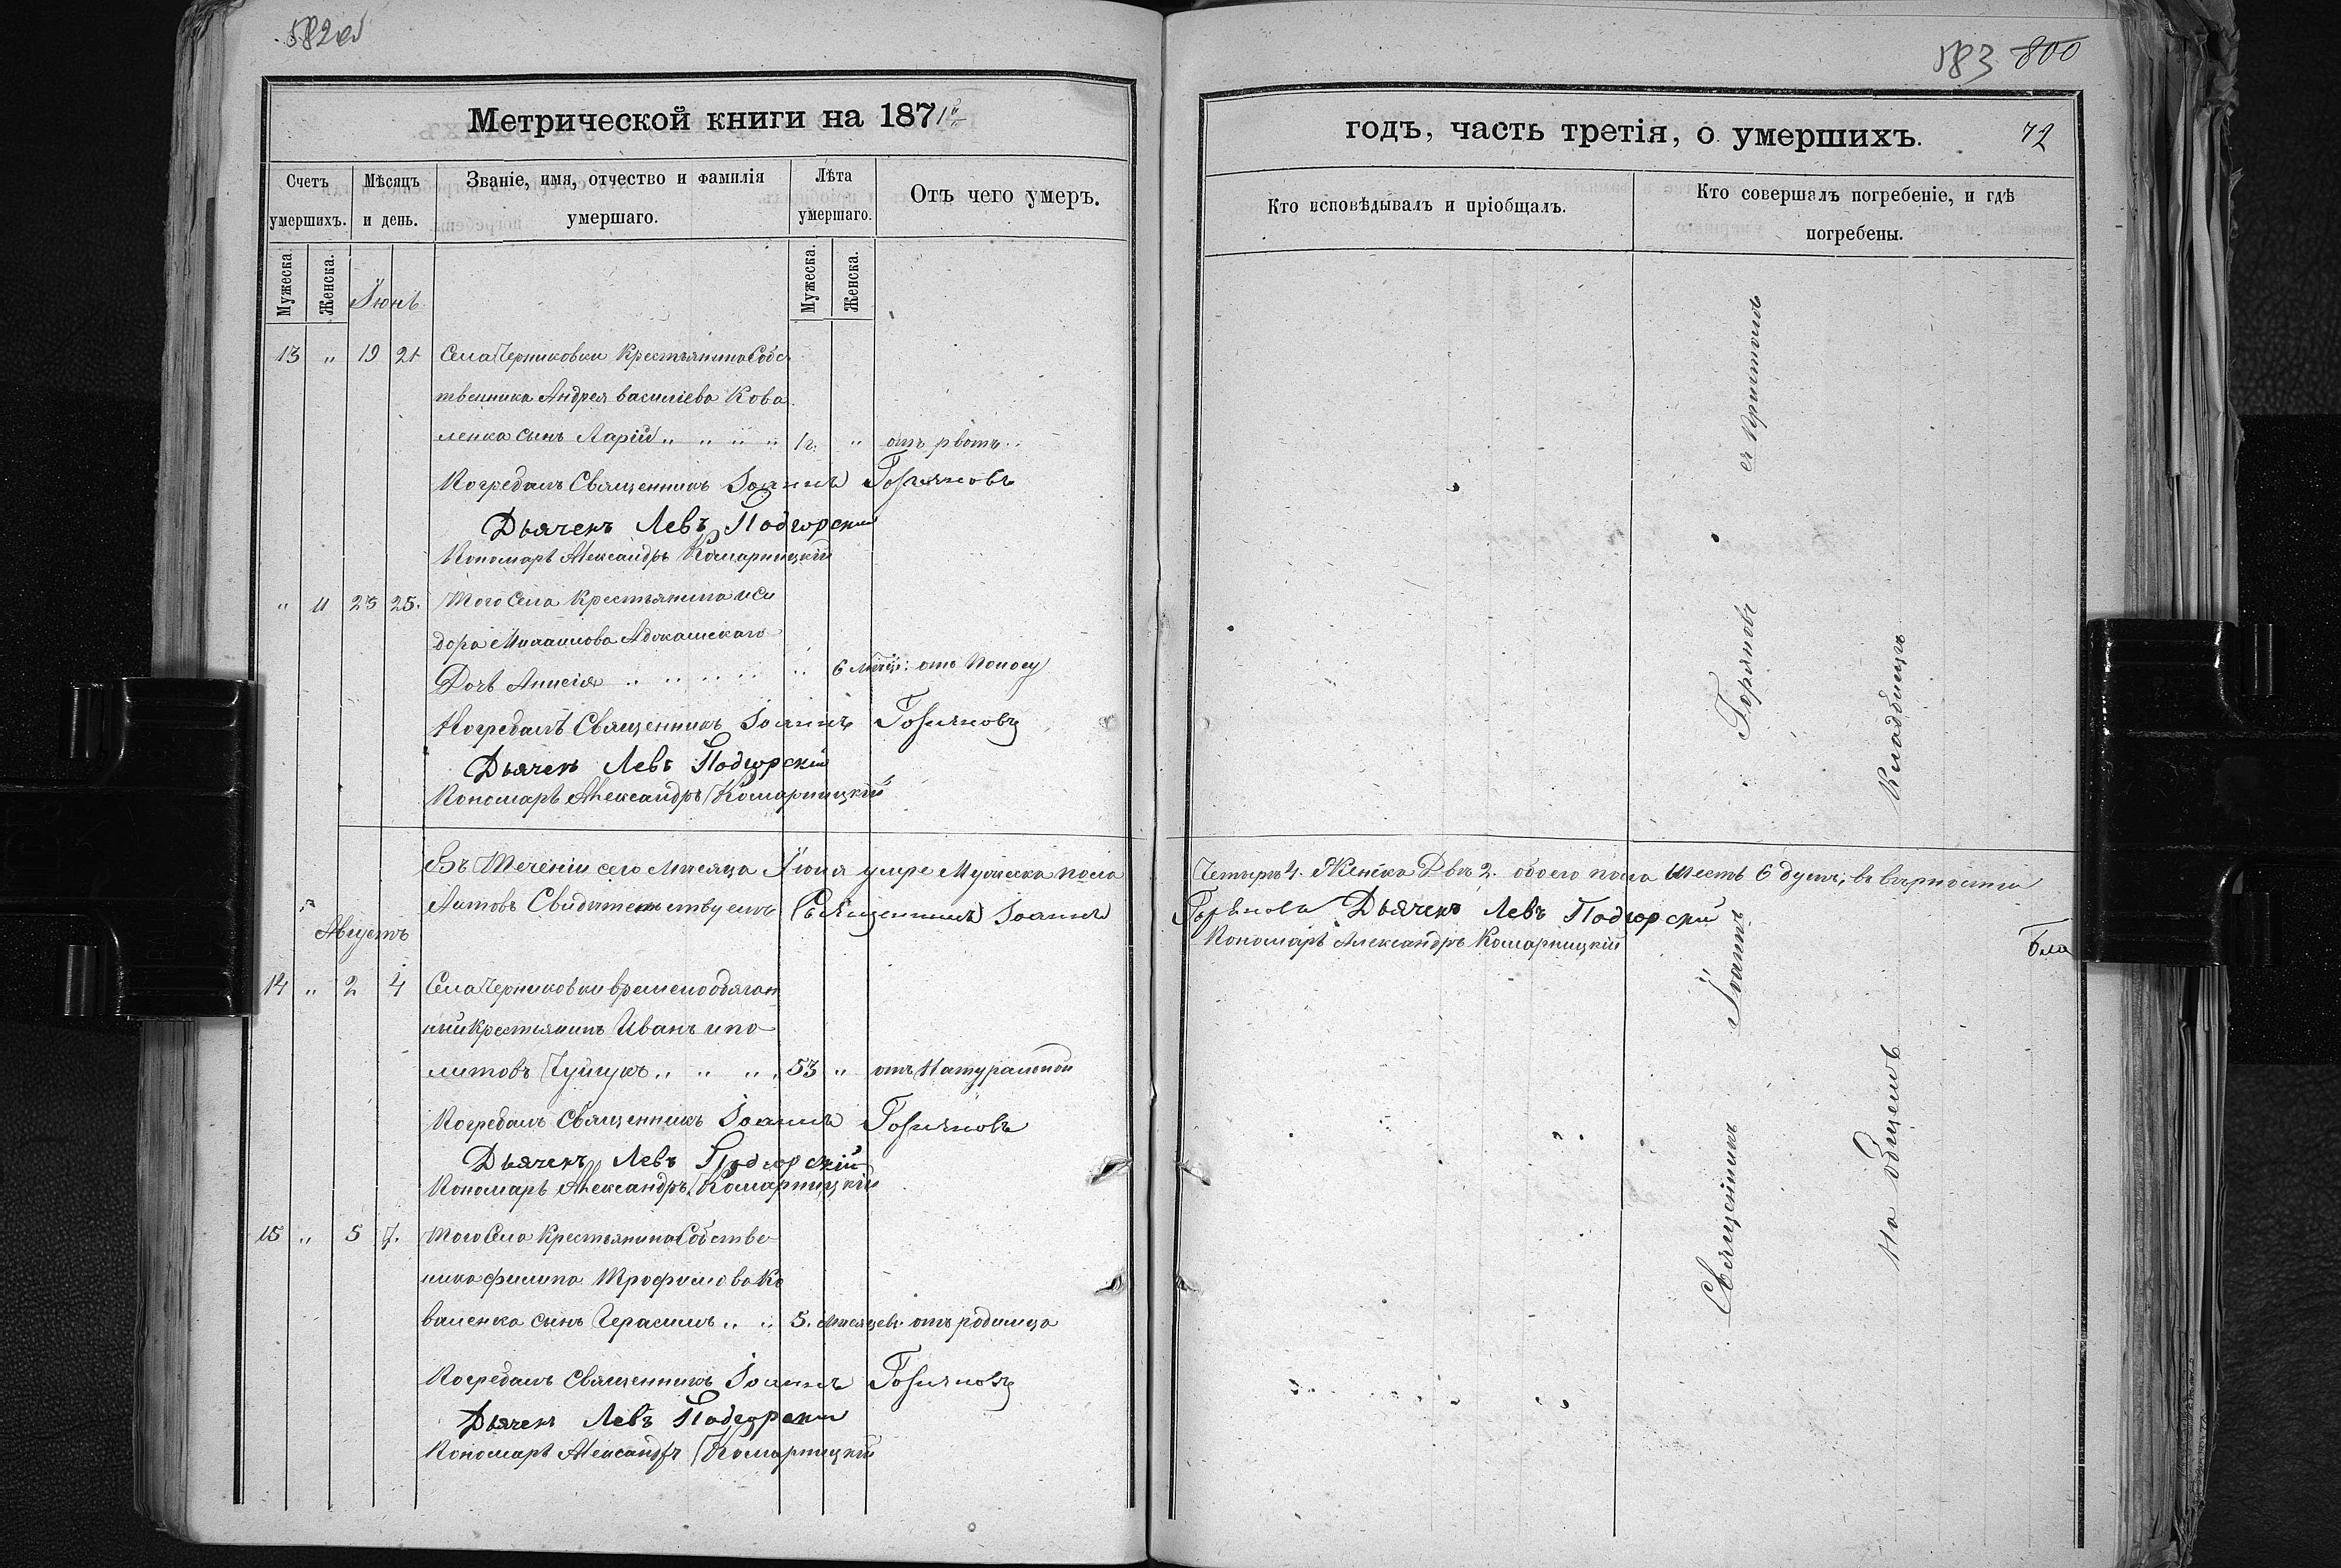 582 об
Метрической книги на 1871й
Счетъ умершихъ.
Мѣсяцъ и день.
Званіе, имя, отчество и фамилія умершаго.
Лѣта умершаго.
Отъ чего умеръ.
Мужеска.
Женска.
Мужеска.
Женска.
Іюнь
13 " 19 21 Села Черниковки Крестьянина Собс
твенника Андрея василіева Кова
ленка сынъ Ларій " " " " 1 г. " отъ рвотъ
Погребалъ Священникъ Іоаннъ Горяновъ
Дьячекъ Левъ Подгорскій
Пономарь Александръ Комарницкій
" 11 23 25. Того Села Крестьянина иси
дора
Дочь Анисія " " " " " 6 мѣсяц: отъ Поносу
Погребалъ Священникъ Іоаннъ Горяновъ
Дьячекъ Левъ Подгорскій
Пономарь Александръ Комарницкій
Въ Теченіи сего Мѣсяца Іюня умре Мужеска пола
Актовъ Свидѣтельствуемъ Священникъ Іоаннъ
Августъ
14 " 2 4 Села Черниковки временообязан
ный Крестьянинъ Иванъ ипо
литовъ " " " 53 " отъ Натуральной
Погребалъ Священникъ Іоаннъ Горяновъ
Дьячекъ Левъ Подгорскій
Пономарь Александръ Комарницкій
15 " 5 7. Того Села Крестьянина Собстве
ника филипа Трофимова Ко
валенка сынъ Герасимъ " " 5. мѣсяцев. отъ родимца
Погребалъ Священникъ Іоаннъ Горяновъ
Дьячекъ Левъ Подгорскій
Пономарь Александръ Комарницкій
583 800
годъ, часть третія, о умершихъ.
72
Кто исповѣдывалъ и пріобщалъ.
Кто совершалъ погребеніе, и гдѣ погребены.
Четыре 4. Женска Двѣ 2. обоего пола шесть 6 душъ; въ вѣрности
Горянова Дьячекъ Левъ Подгорскій
Пономарь Александръ Комарницкій
Священникъ Іоаннъ Горяновъ съ Причтомъ
На общемъ Кладбищѣ